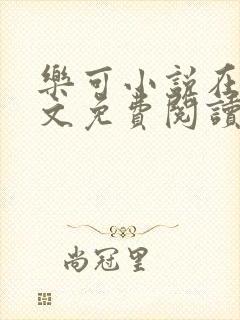 樂可小說在
文免費閱讀
尚冠里